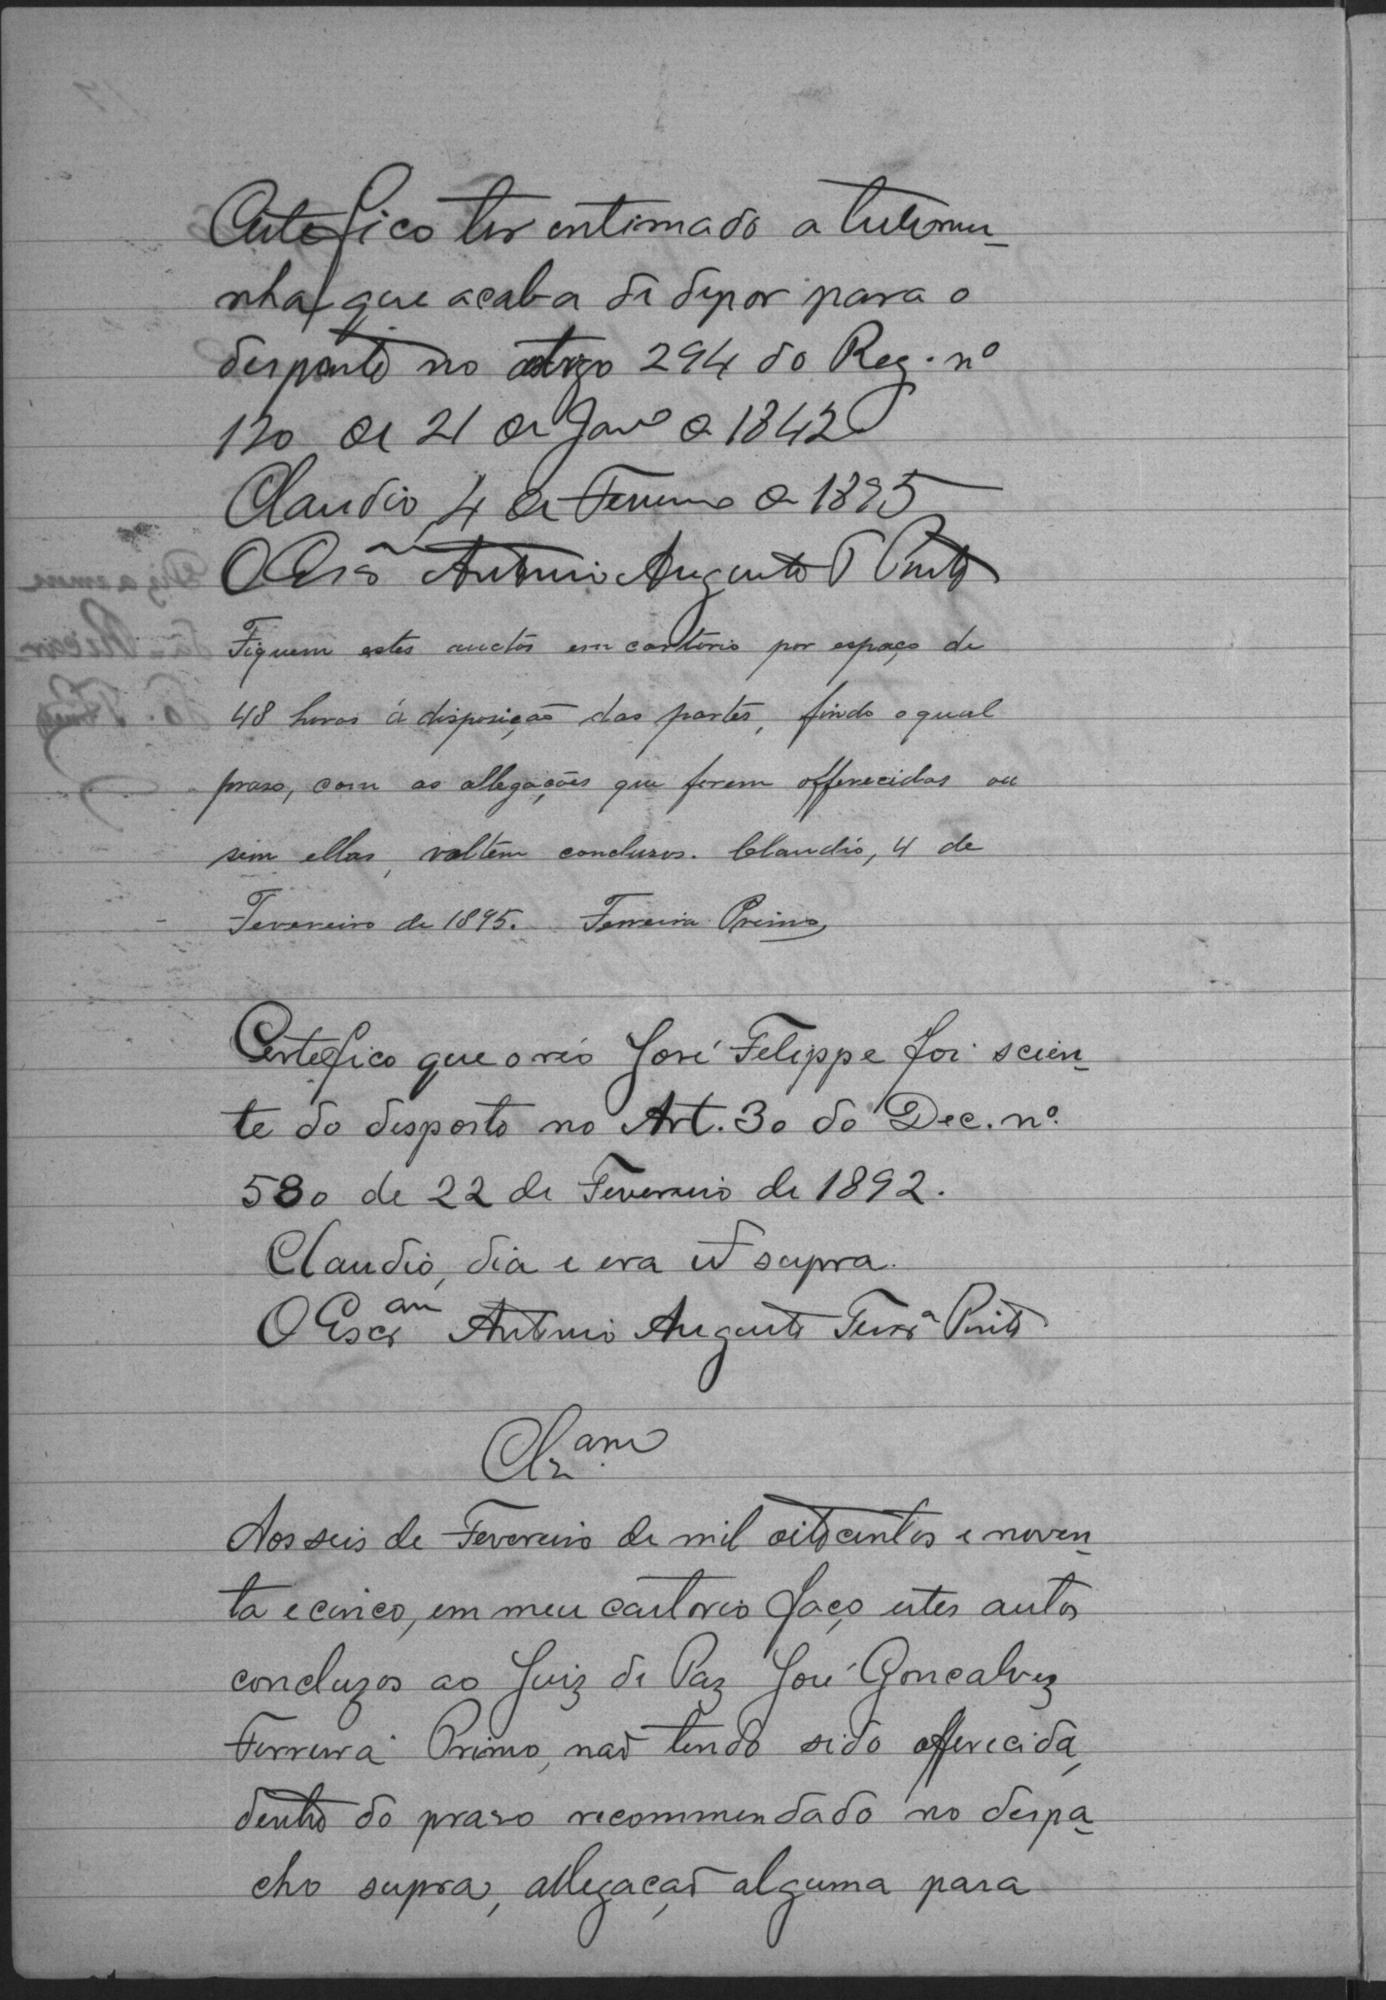 Certefico ter entimado a testemu-
nha que acaba de depor para o
desposto no artigo 294 do Reg. nº
120 de 21 de Janrº de 1842
Claudio 4 de Fevereiro de 1895
O Escrão Antonio Augusto F Pinto
Fiquem estes auctos em cartorio por espaço de
48 horas á disposição das partes, findo o qual
praso, com as allegações que forem offerecidas ou
sem ellas, voltem concluzos. Claudio, 4 de
Fevereiro de 1895. Ferreira Primo
Certefico que o réo José Felippe foi scien-
te do desposto no Art. 30 do Dec. nº.
580 de 22 de Fevereiro de 1892.
Claudio, dia e era ut supra.
O Escram Antonio Augusto Ferrª Pinto
Clzam
Aos seis de Fevereiro de mil oitocentos e noven-
ta e cinco, em meu cartorio faço estes autos
concluzos ao Juiz de Paz José Goncalvez
Ferreira Primo, não tendo sido offerecida,
dentro do praso recommendado no despa-
cho supra, allegação alguma para